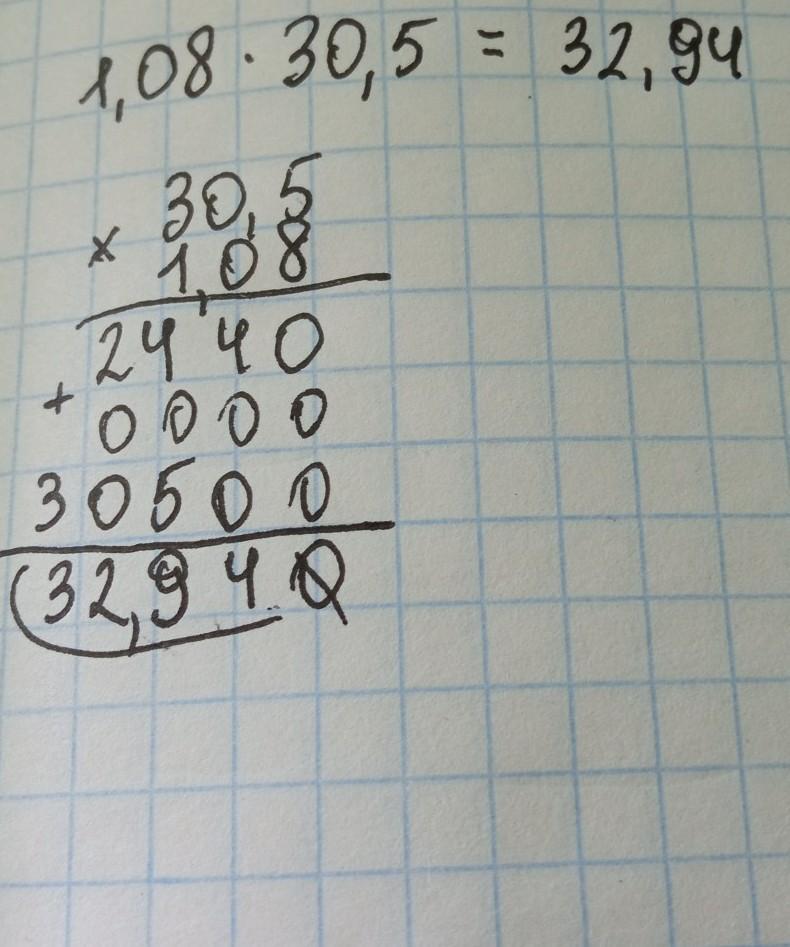 1,08 · 30,5 = 32,94
30,5
× 1,08
2440
+ 0000
30500
32,940